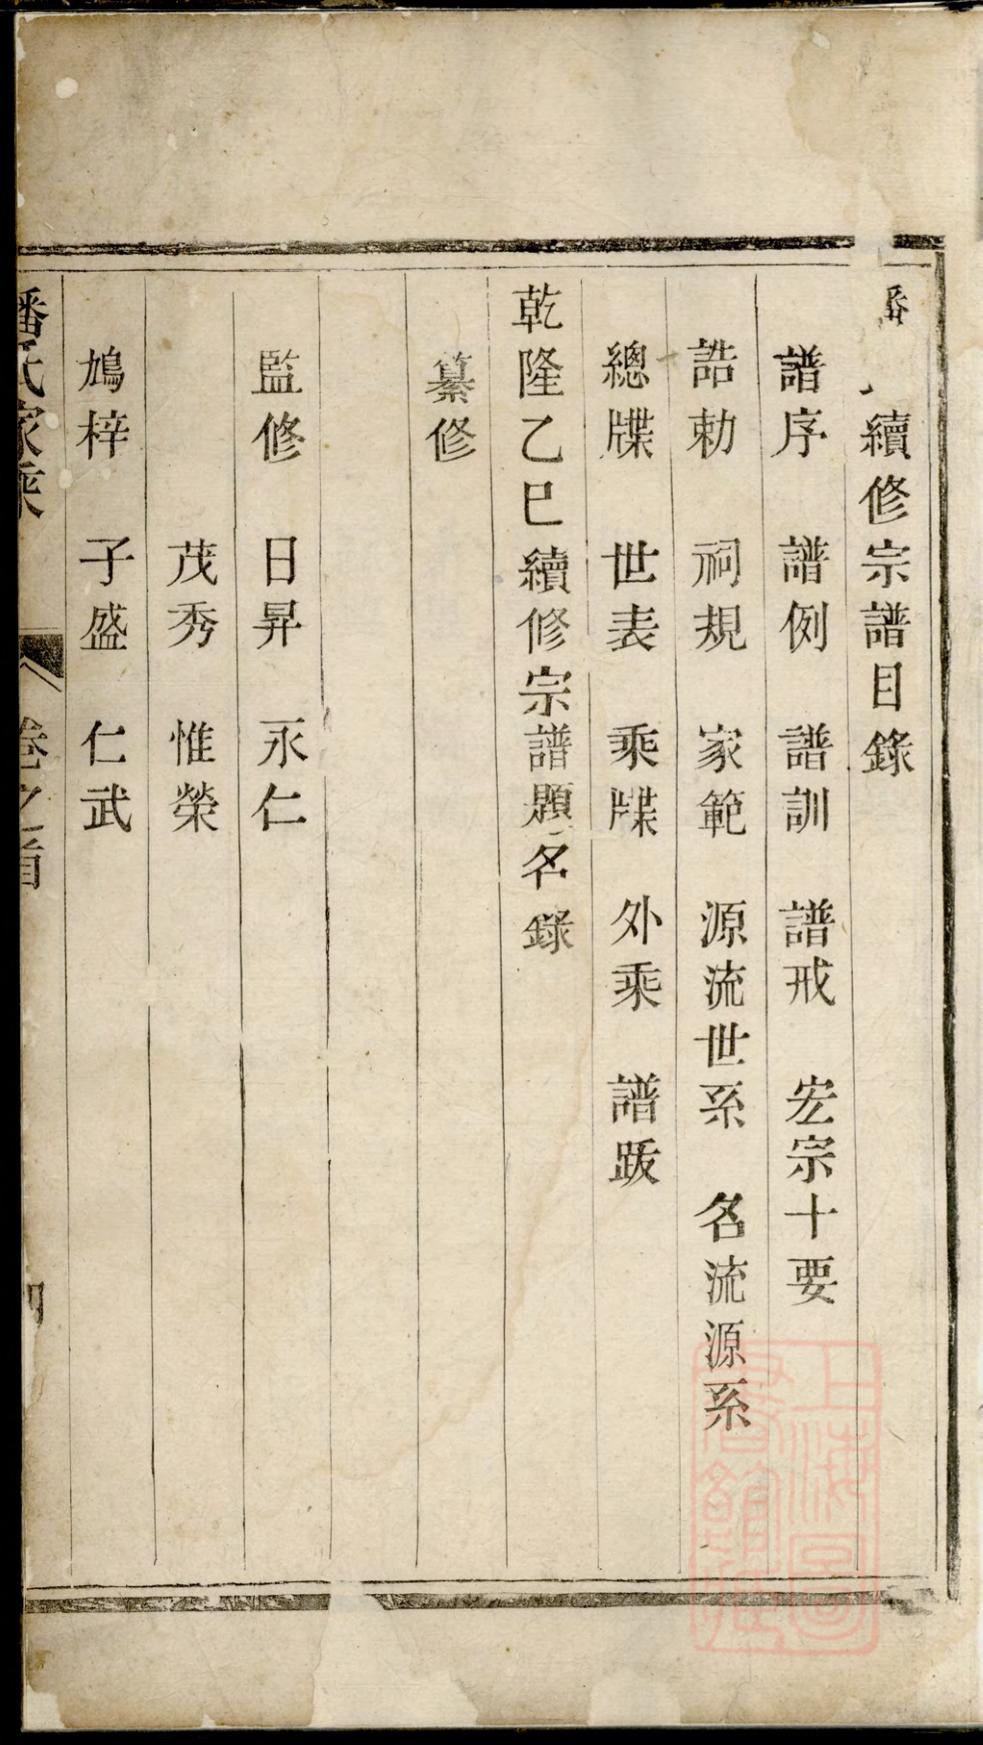 續修宗譜目錄
譜序　譜例　譜訓　譜戒　宏宗十要
誥勅　祠規　家範　源流世系　名流源系
總牒　世表　乘牒　外乘　譜跋
乾隆乙巳續修宗譜題名錄
纂修
監修　日昇　永仁
茂秀　惟榮
鳩梓　子盛　仁武
潘氏家乘　卷之首
上海圖書館藏